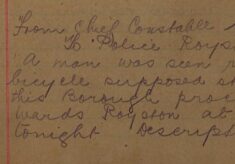 From Chief Constable
To Police Royston
A man was seen
bicycle supposed
this Borough
wards Royston at
tonight Descript